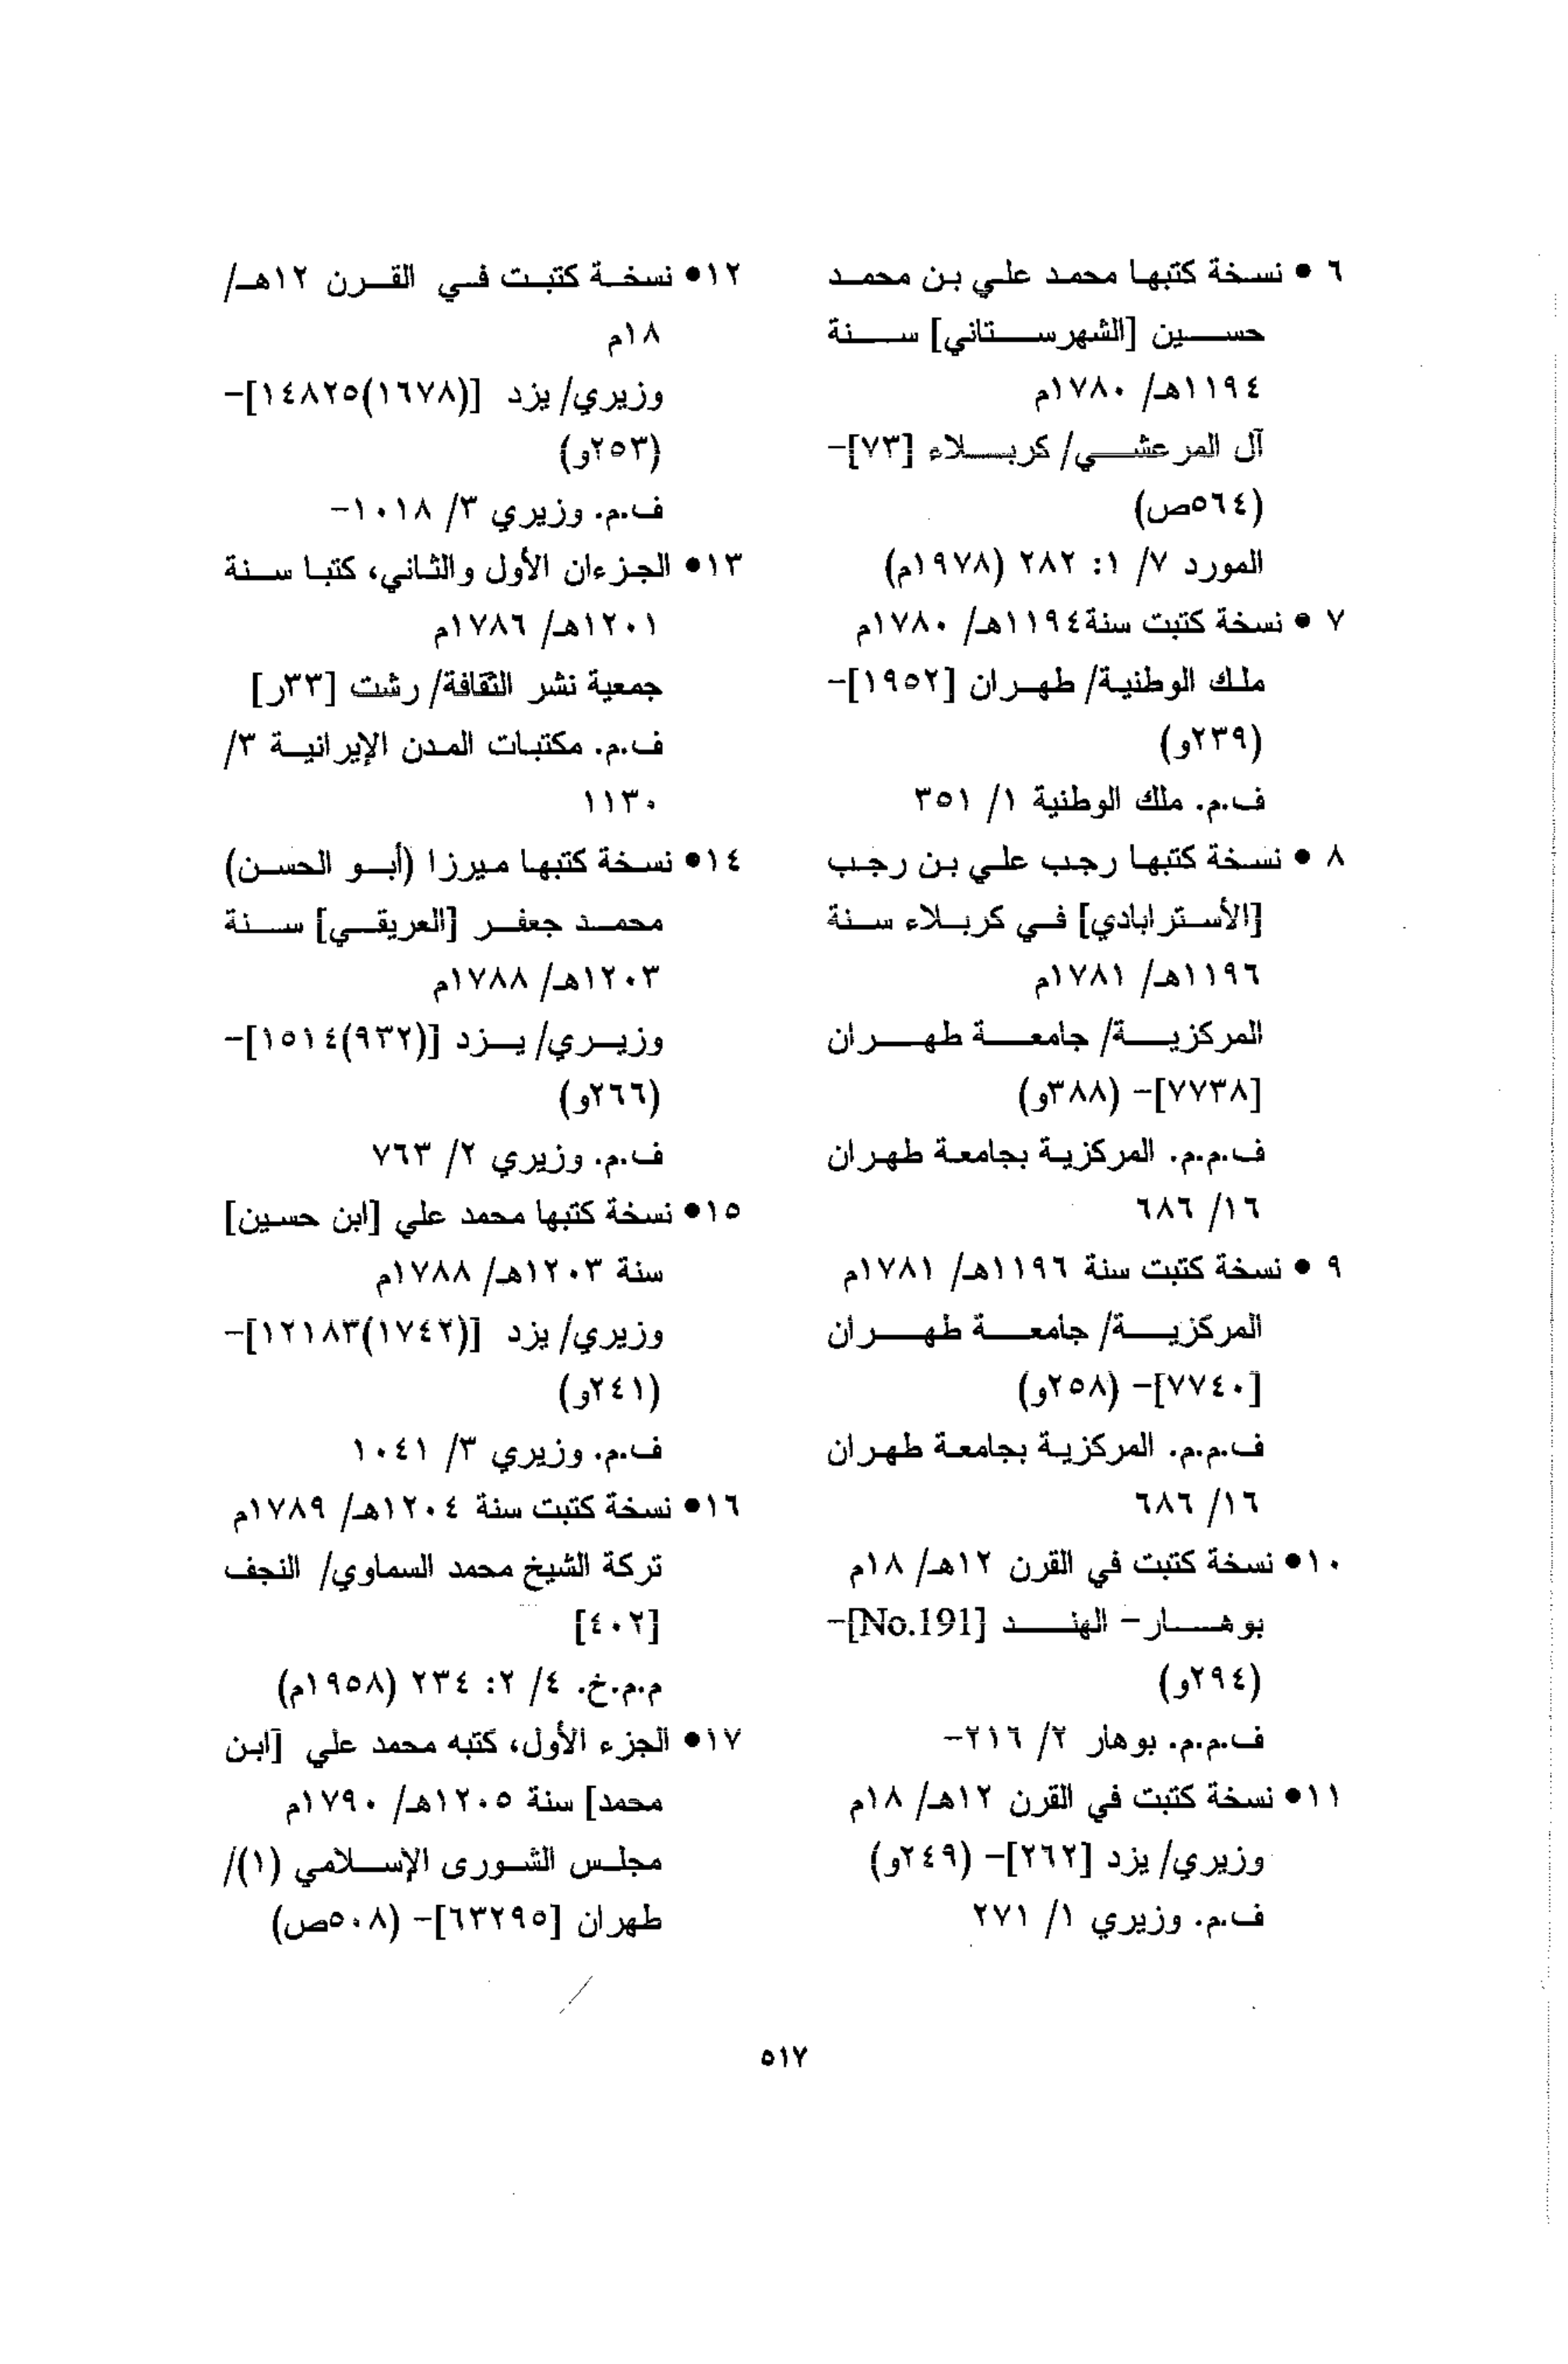 ٦ • نسخة كتبها محمد علي بن محمد
حسين [الشهرستاني] سنة
١١٩٤هـ/ ١٧٨٠م
آل المرعشي/ كربلاء [٧٣]-
(٥٦٤ص)
المورد ٧/ ١: ٢٨٢ (١٩٧٨م)
٧ • نسخة كتبت سنة١١٩٤هـ/ ١٧٨٠م
ملك الوطنية/ طهران [١٩٥٢]-
(٢٣٩و)
ف.م. ملك الوطنية ١/ ٣٥١
٨ • نسخة كتبها رجب علي بن رجب
[الأسترابادي] في كربلاء سنة
١١٩٦هـ/ ١٧٨١م
المركزية/ جامعة طهران
[٧٧٣٨]- (٣٨٨و)
ف.م.م. المركزية بجامعة طهران
١٦/ ٦٨٦
٩ • نسخة كتبت سنة ١١٩٦هـ/ ١٧٨١م
المركزية/ جامعة طهران
[٧٧٤٠]- (٢٥٨و)
ف.م.م. المركزية بجامعة طهران
١٦/ ٦٨٦
١٠• نسخة كتبت في القرن ١٢هـ/ ١٨م
بوهار- الهند [No.191]-
(٢٩٤و)
ف.م.م. بوهار ٢/ ٢١٦-
١١• نسخة كتبت في القرن ١٢هـ/ ١٨م
وزيري/ يزد [٢٦٢]- (٢٤٩و)
ف.م. وزيري ١/ ٢٧١
١٢• نسخة كتبت في القرن ١٢هـ/
١٨م
وزيري/ يزد [(١٦٧٨)١٤٨٢٥]-
(٢٥٣و)
ف.م. وزيري ٣/ ١٠١٨-
١٣• الجزءان الأول والثاني، كتبا سنة
١٢٠١هـ/ ١٧٨٦م
جمعية نشر الثقافة/ رشت [٣٣ر]
ف.م. مكتبات المدن الإيرانية ٣/
١١٣٠
١٤• نسخة كتبها ميرزا (أبو الحسن)
محمد جعفر [العريقي] سنة
١٢٠٣هـ/ ١٧٨٨م
وزيري/ يزد [(٩٣٢)١٥١٤]-
(٢٦٦و)
ف.م. وزيري ٢/ ٧٦٣
١٥• نسخة كتبها محمد علي [ابن حسين]
سنة ١٢٠٣هـ/ ١٧٨٨م
وزيري/ يزد [(١٧٤٢)١٢١٨٣]-
(٢٤١و)
ف.م. وزيري ٣/ ١٠٤١
١٦• نسخة كتبت سنة ١٢٠٤هـ/ ١٧٨٩م
تركة الشيخ محمد السماوي/ النجف
[٤٠٢]
م.م.خ. ٤/ ٢: ٢٣٤ (١٩٥٨م)
١٧• الجزء الأول، كتبه محمد علي [ابن
محمد] سنة ١٢٠٥هـ/ ١٧٩٠م
مجلس الشورى الإسلامي (١)/
طهران [٦٣٢٩٥]- (٥٠٨ص)
٥١٧